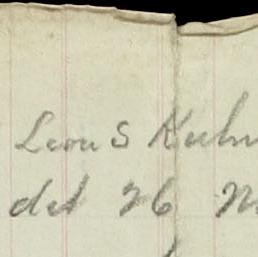 Leon S Kuhn
det 26 N